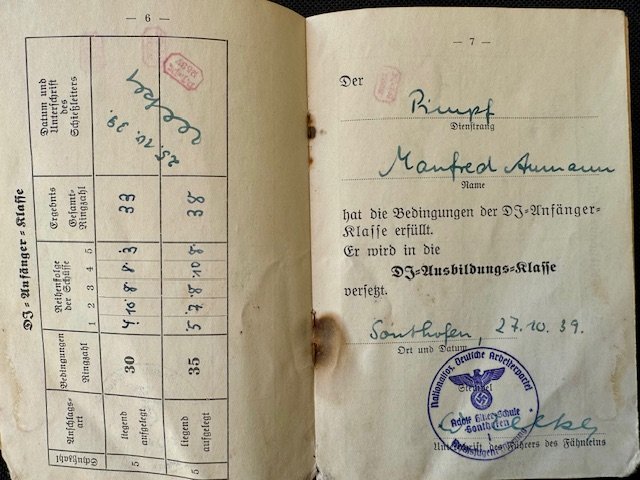 — 6 —
DJ-Anfänger-Klasse
Schußzahl
Anschlags-
art
Bedingungen
Ringzahl
Reihenfolge
der Schüsse
1 2 3 4 5
Ergebnis
Gesamt-
Ringzahl
Datum und
Unterschrift
des
Schießleiters
5
liegend
aufgelegt
30
4 10 8 8 3
33
5
liegend
aufgelegt
35
5 7 8 10 8
38
25.10.39.
— 7 —
Der
Pimpf
Dienstrang
Manfred Aumann
Name
hat die Bedingungen der DJ-Anfänger-
Klasse erfüllt.
Er wird in die
DJ-Ausbildungs-Klasse
versetzt.
Sonthofen, 27.10.39.
Ort und Datum
Stempel
Nationalsoz. Deutsche Arbeiterpartei
Adolf Hitler-Schule
Sonthofen
Unterschrift des Führers des Fähnleins